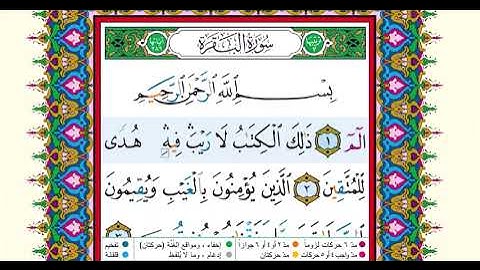 سُورَةُ الْبَقَرَةِ
بِسْمِ اللَّهِ الرَّحْمَٰنِ الرَّحِيمِ
الٓمٓ ۝١ ذَٰلِكَ الْكِتَٰبُ لَا رَيْبَ ۛ فِيهِ ۛ هُدًى
لِّلْمُتَّقِينَ ۝٢ الَّذِينَ يُؤْمِنُونَ بِالْغَيْبِ وَيُقِيمُونَ
مدّ ٦ حركات لزوماً مدّ ٢ أو ٤ أو ٦ جوازاً إخفاء ، ومواقع الغُنَّة (حركتان) تفخيم
مدّ واجب ٤ أو ٥ حركات مدّ حركتان إدغام ، وما لا يُلفَظ قلقلة